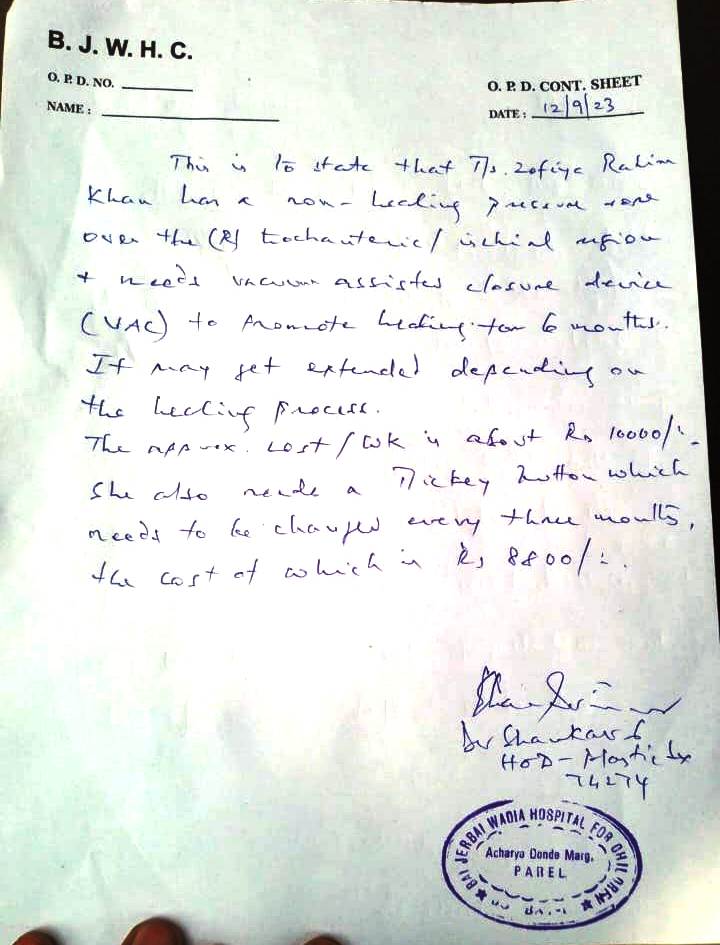 B. J. W. H. C.
O. P. D. NO.
O. P. D. CONT. SHEET
NAME :
DATE : 12/9/23
This is to state that Zofiya Rahim
Khan has a non-healing pressure sore
over the (R) trochanteric/ ischial region
+ needs vacuum assisted closure device
(VAC) to promote healing for 6 months.
It may get extended depending on
the healing process.
The approx. cost/wk is about Rs 10000/-.
She also needs a Mickey button which
needs to be changed every three months,
the cost of which is Rs 8800/-.
Dr Shankar
HOD - Plastic Sx
74274
BAI JERBAI WADIA HOSPITAL FOR CHILDREN
Acharya Donde Marg,
PAREL